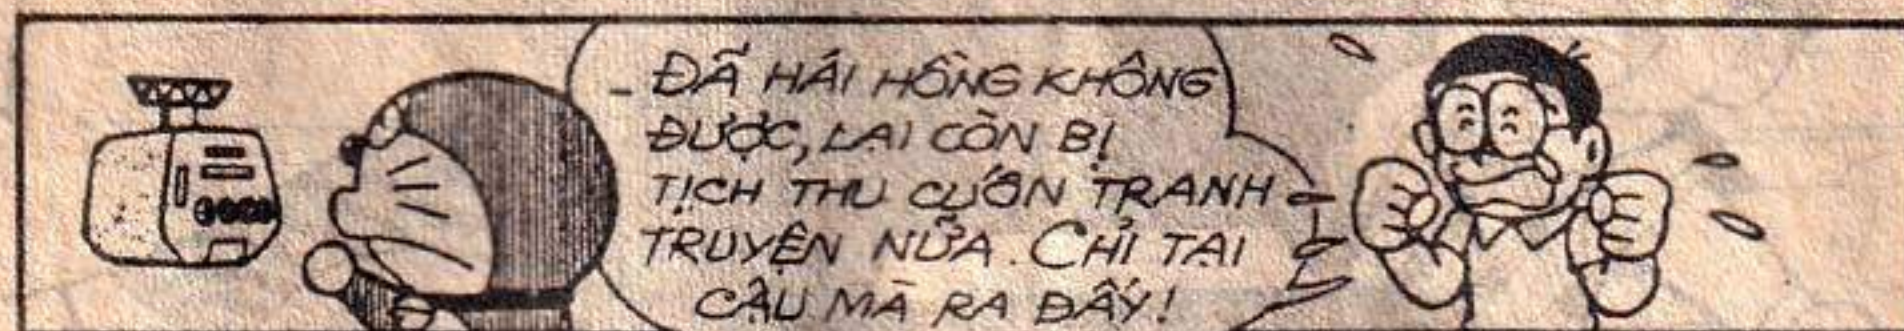 - ĐÃ HÁI HỒNG KHÔNG
ĐƯỢC, LẠI CÒN BỊ
TỊCH THU CUỐN TRANH
TRUYỆN NỮA. CHỈ TẠI
CẬU MÀ RA ĐẤY!